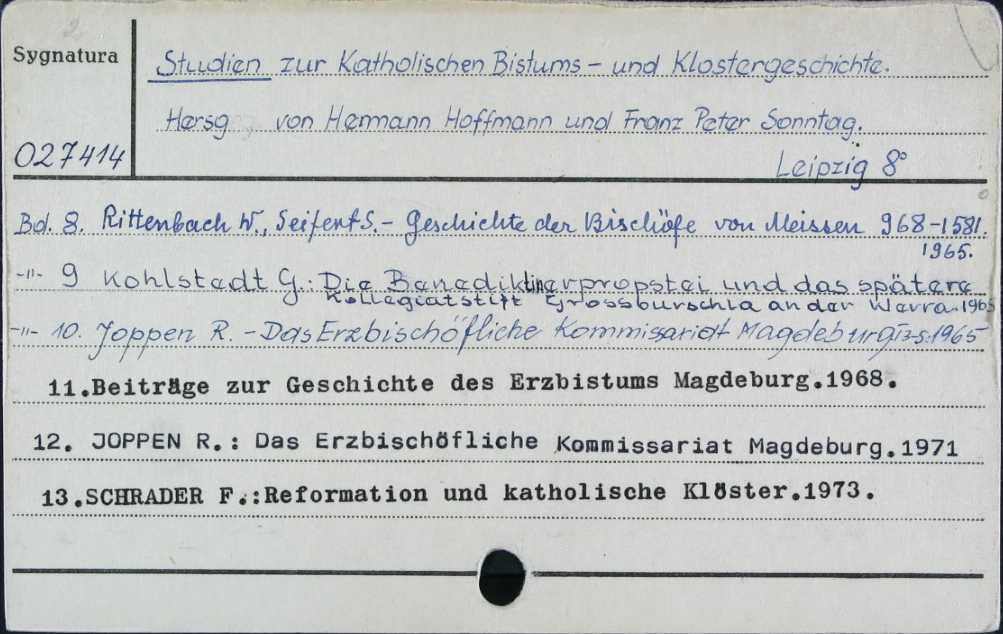 2
Sygnatura
Studien zur Katholischen Bistums- und Klostergeschichte.
Hersg. von Hermann Hoffmann und Franz Peter Sonntag.
027414
Leipzig 8°
Bd. 8. Rittenbach W., Seifert S. - Geschichte der Bischöfe von Meissen 968-1581.
1965.
-"- 9 Kohlstedt G.: Die Benediktinerpropstei und das spätere
Kollegiatstift Grossburschla an der Werra. 1965
-"- 10. Joppen R. - Das Erzbischöfliche Kommissariat Magdeburg 1965
11.Beiträge zur Geschichte des Erzbistums Magdeburg.1968.
12. JOPPEN R.: Das Erzbischöfliche Kommissariat Magdeburg.1971
13.SCHRADER F.:Reformation und katholische Klöster.1973.